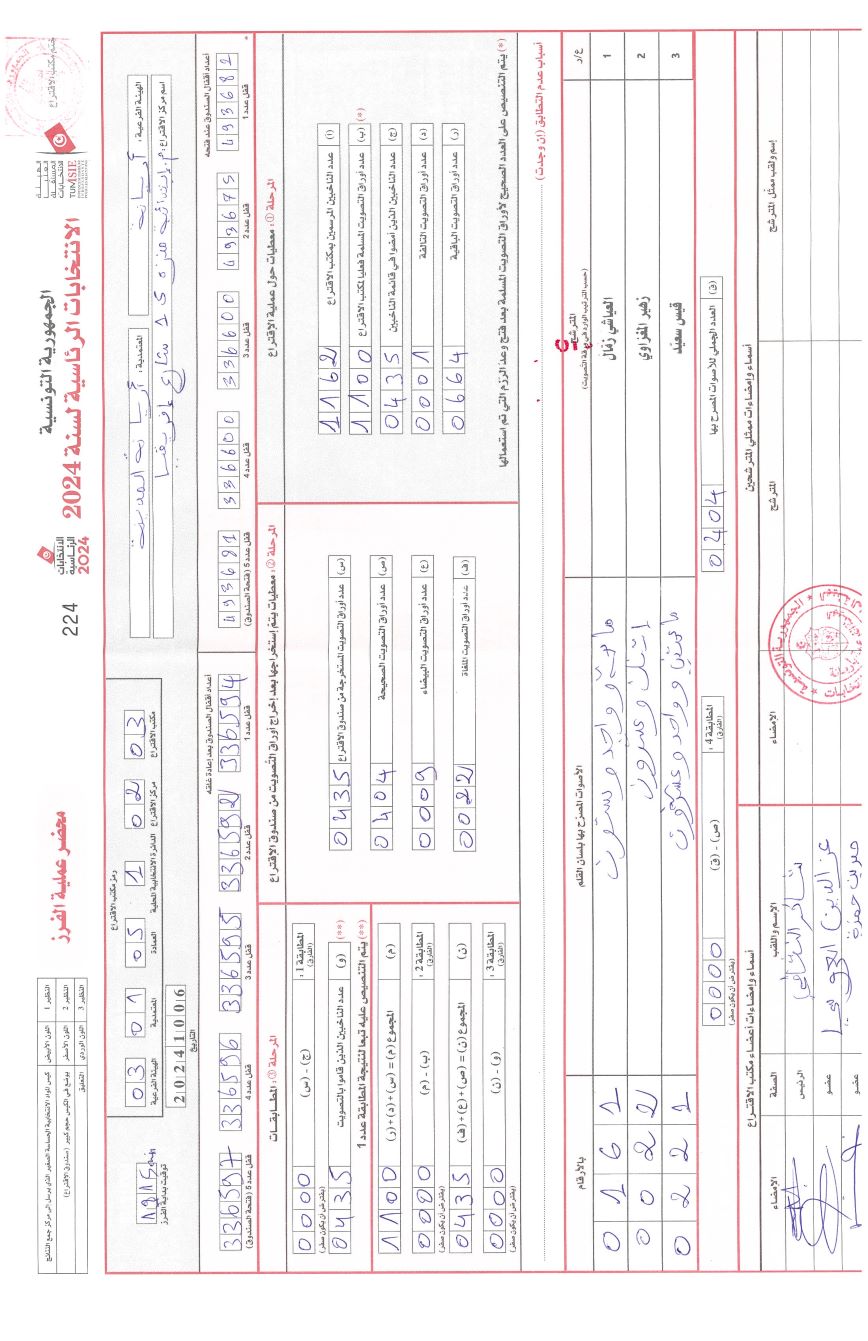 الجمهورية التونسية
الانتخابات الرئاسية لسنة 2024
محضر عملية الفرز
224
الانتخابات
الرئاسية
2024
الهيئة
العليا
المستقلة
للانتخابات
TUNISIE
ختم مكتب الاقتراع
النظير 1 اللون الأبيض كيس المواد الانتخابية الحساسة الصغير الذي يرسل إلى مركز جمع النتائج
النظير 2 اللون الأصفر يوضع في الكيس حجم كبير (صندوق الاقتراع)
النظير 3 اللون الوردي التعليق
الهيئة الفرعية : أريانة
المعتمدية : أريانة المدينة
اسم مركز الاقتراع :
رمز مكتب الاقتراع
مكتب الاقتراع 03
مركز الاقتراع 02
الدائرة الانتخابية المحلية 1
العمادة 05
المعتمدية 01
الهيئة الفرعية 03
التاريخ 20241006
توقيت بداية الفرز
أعداد أقفال الصندوق عند فتحه
قفل عدد 1
قفل عدد 2 493675
قفل عدد 3 336600
قفل عدد 4 336600
قفل عدد 5 (فتحة الصندوق) 493691
أعداد أقفال الصندوق بعد إعادة غلقه
قفل عدد 1 336594
قفل عدد 2 336592
قفل عدد 3 336595
قفل عدد 4 336596
قفل عدد 5 (فتحة الصندوق) 336597
المرحلة ① : معطيات حول عملية الإقتراع
(أ) عدد الناخبين المرسمين بمكتب الاقتراع 1162
(ب) (*) عدد أوراق التصويت المسلمة فعليا لمكتب الاقتراع 1100
(ج) عدد الناخبين الذين أمضوا في قائمة الناخبين 0435
(د) عدد أوراق التصويت التالفة 0001
(ر) عدد أوراق التصويت الباقية 0664
(*) يتم التنصيص على العدد الصحيح لأوراق التصويت المسلمة بعد فتح وعد الرزم التي تم استعمالها
المرحلة ② : معطيات يتم إستخراجها بعد إخراج أوراق التصويت من صندوق الإقتراع
(س) عدد أوراق التصويت المستخرجة من صندوق الاقتراع 0435
(ص) عدد أوراق التصويت الصحيحة 0404
(ع) عدد أوراق التصويت البيضاء 0009
(ف) عدد أوراق التصويت الملغاة 0022
المرحلة ③ : المطابقات
المطابقة 1 : (الفارق) (ج) - (س) 0000 (يفترض أن يكون صفر)
(**) (و) عدد الناخبين الذين قاموا بالتصويت 0435
(**) يتم التنصيص عليه تبعا لنتيجة المطابقة عدد 1
(م) المجموع (م) = (س)+(د)+(ر) 1100
المطابقة 2 : (الفارق) (ب) - (م) 0000 (يفترض أن يكون صفر)
(ن) المجموع (ن) = (ص)+(ع)+(ف) 0435
المطابقة 3 : (الفارق) (و) - (ن) 0000 (يفترض أن يكون صفر)
أسباب عدم التطابق (إن وجدت)
ع/ر المترشح (حسب الترتيب الوارد في ورقة التصويت) الأصوات المصرح بها بلسان القلم بالأرقام
1 العياشي زمال مائة وواحد وستون 0161
2 زهير المغزاوي إثنان وعشرون 0022
3 قيس سعيد مائتين وواحد وعشرون 0221
(ق) العدد الجملي للأصوات المصرح بها 0404
المطابقة 4 : (الفارق) (ص) - (ق) 0000 (يفترض أن يكون صفر)
أسماء وإمضاءات ممثلي المترشحين
إسم ولقب ممثل المترشح المترشح الإمضاء
أسماء وإمضاءات أعضاء مكتب الاقتراع
الإسم واللقب الصفة الإمضاء
الرئيس
عضو
عضو